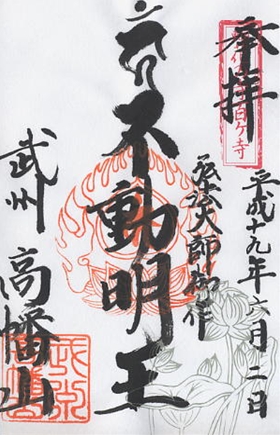 奉拝
平成十九年六月二日
弘法大師御作
不動明王
武州
高幡山